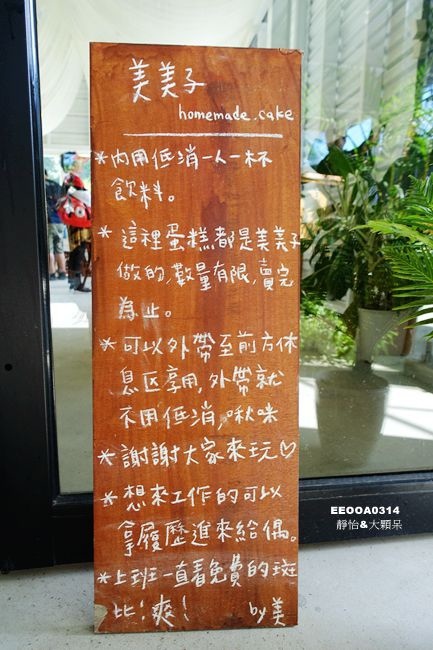 美美子
homemade.cake
*內用低消一人一杯
飲料。
*這裡蛋糕都是美美子
做的,數量有限,賣完
為止。
*可以外帶至前方休
息区享用,外帶就
不用低消,啾咪
*謝謝大家來玩♡
*想來工作的可以
拿履歷進來給偶。
*上班一直看免費的斑
比!爽! by美
EEOOA0314
靜怡&大顆呆